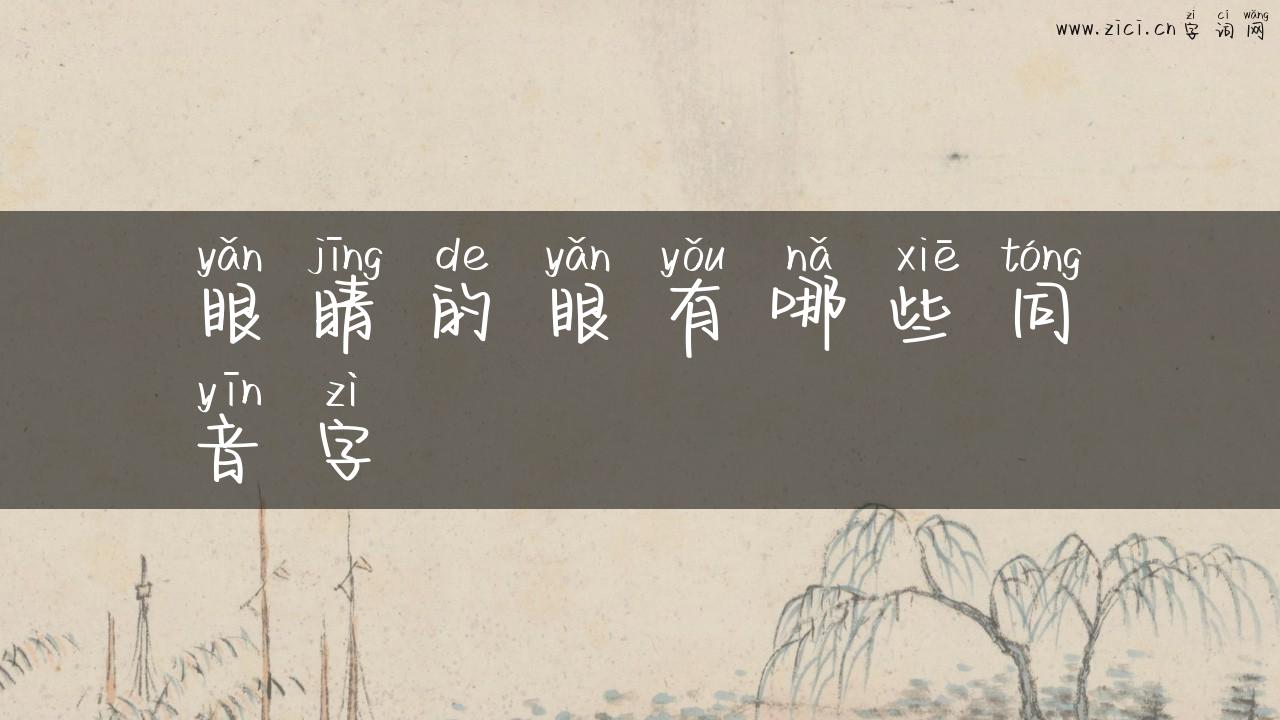 zì cí wǎng
www.zici.cn 字 词 网
yǎn jīng de yǎn yǒu nǎ xiē tóng
眼 睛 的 眼 有 哪 些 同
yīn zì
音 字